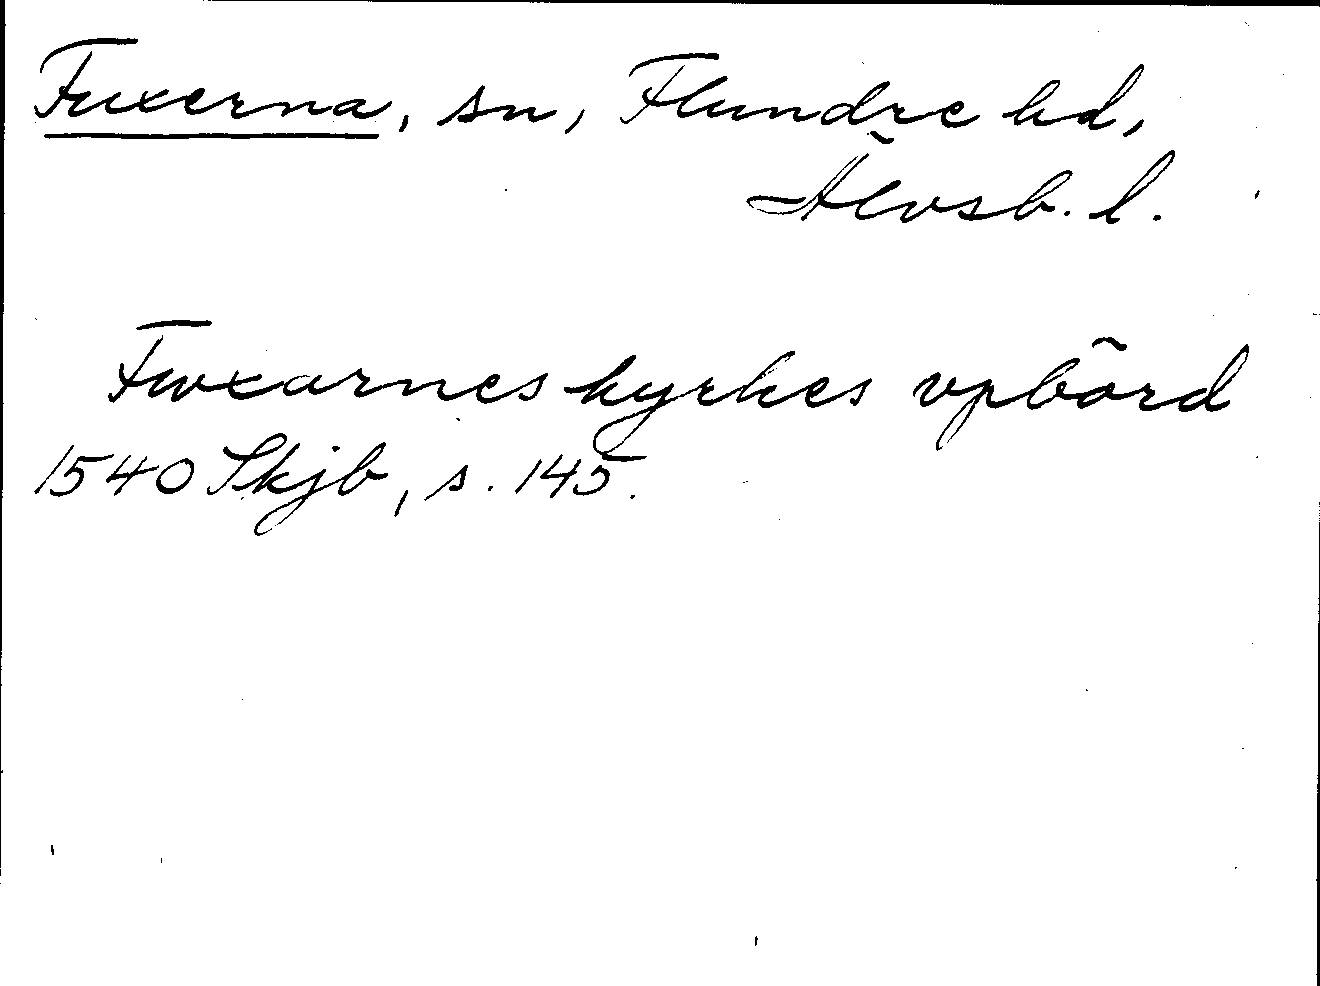 Fuxerna, sn, Flundre hd,
Älvsb. l.
Fwxarnes kyrkes vpbörd
1540 Skjb, s. 145.